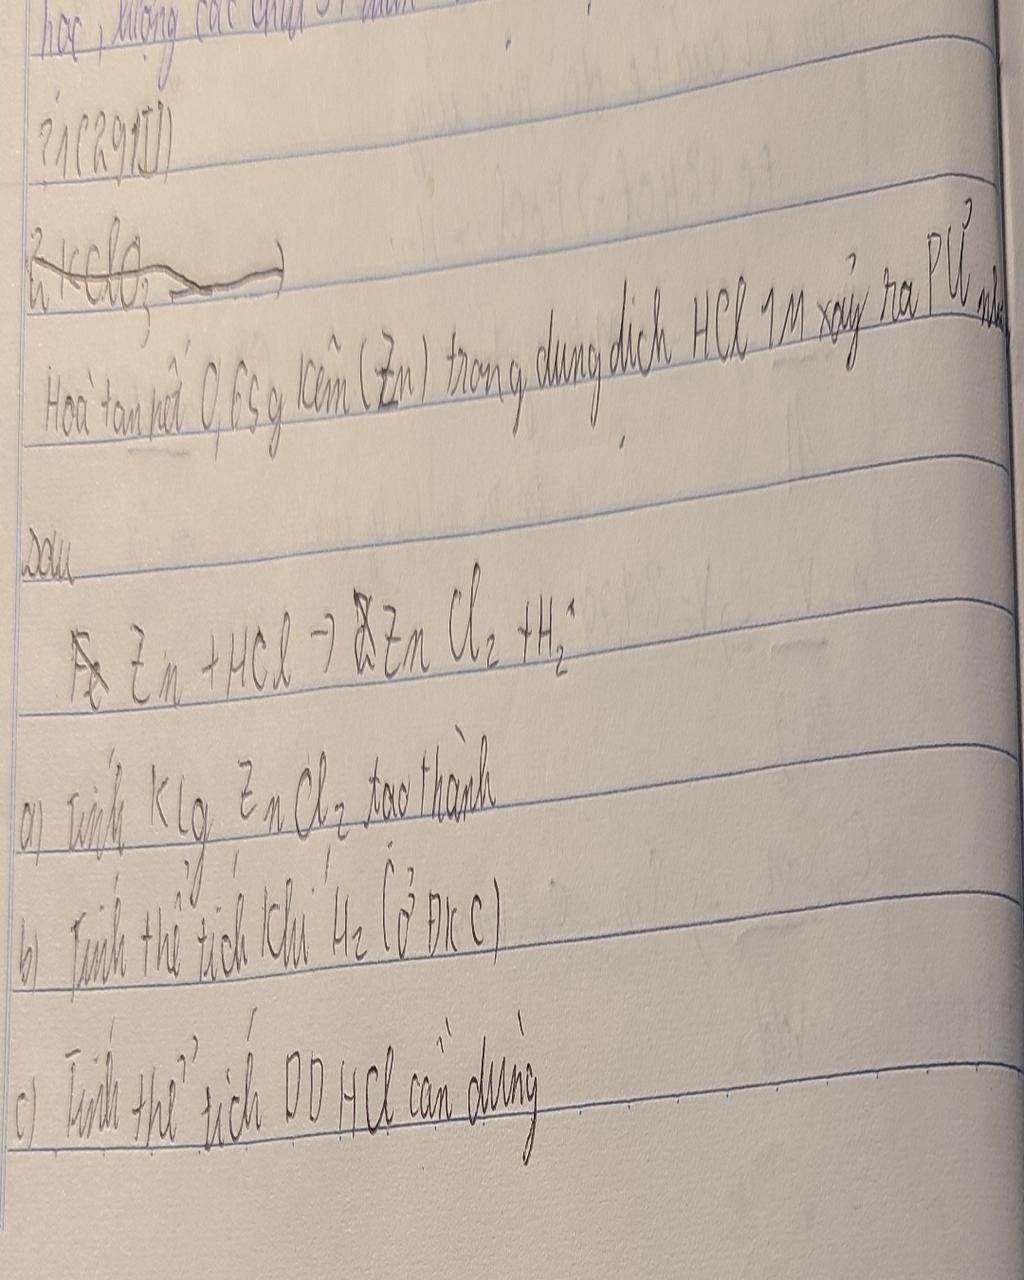 học, lượng các chất
Hoà tan hết 0,65g kẽm (Zn) trong dung dịch HCl 1M xảy ra PƯ như
sau
Zn + HCl → Zn Cl₂ + H₂
a) Tính Klg ZnCl₂ tạo thành
b) Tính thể tích khí H₂ (ở ĐKC)
c) Tính thể tích DD HCl cần dùng